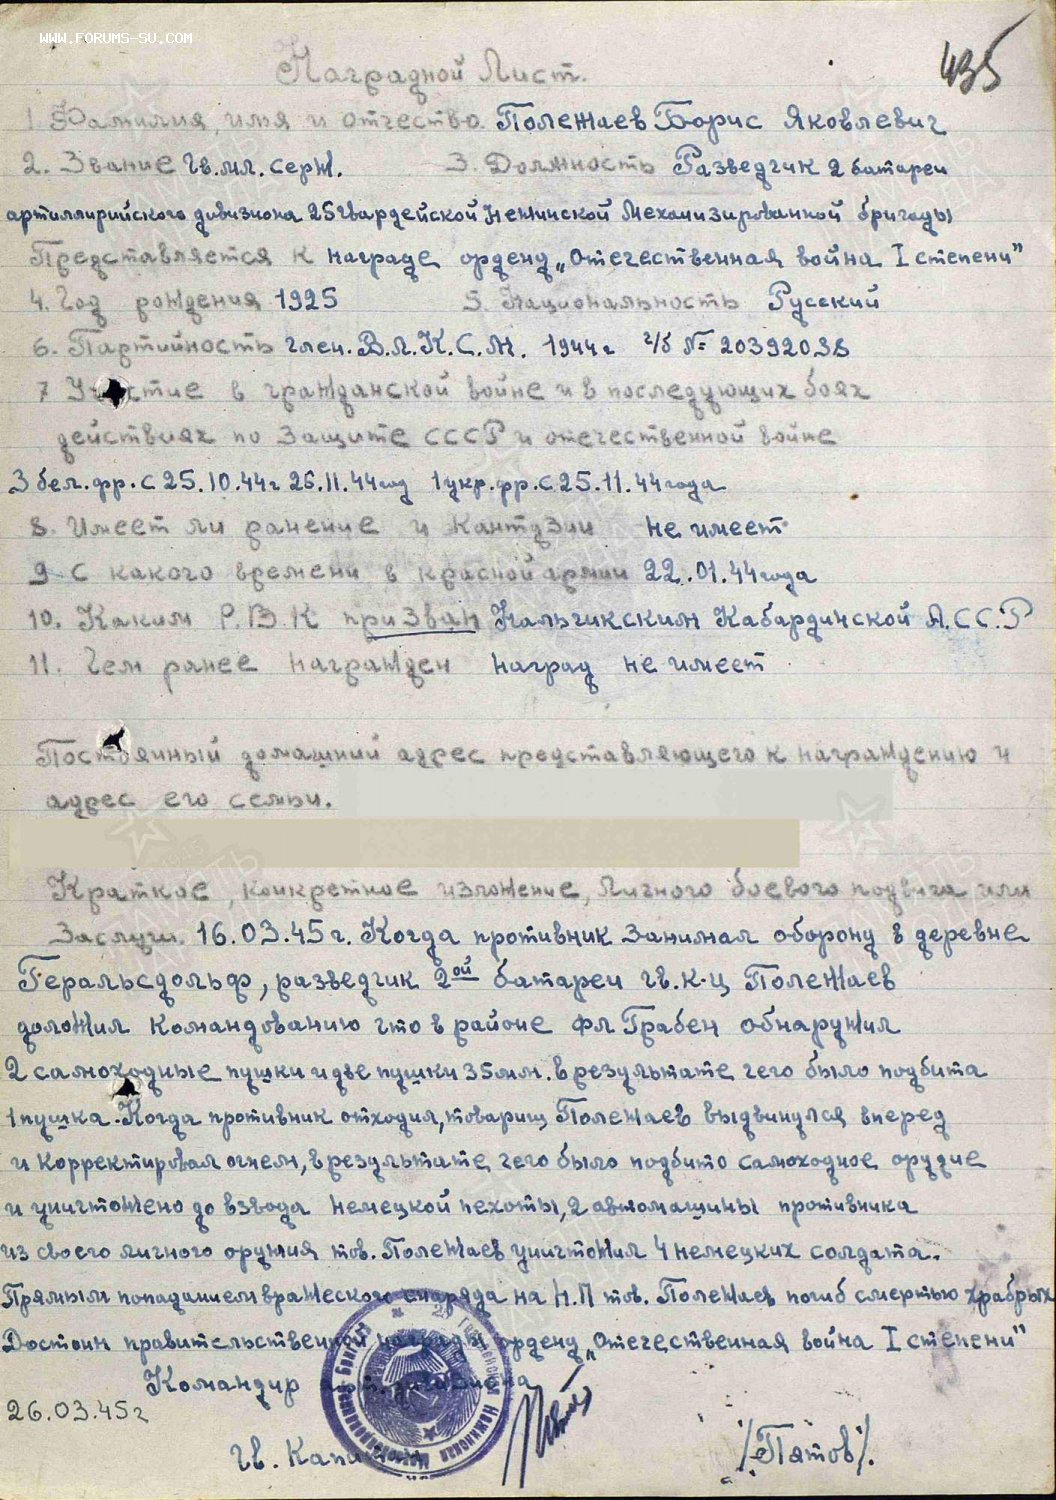 WWW.FORUMS-SU.COM
435
Наградной Лист.
1. Фамилия, имя и отчество Полежаев Борис Яковлевич
2. Звание Гв.мл. серж. 3. Должность Разведчик 2 батареи
артиллирийского дивизиона 25 Гвардейской Нежинской Механизированной бригады
Представляется к награде ордену „Отечественная война I степени"
4. Год рождения 1925 5. Национальность Русский
6. Партийность член. В.Л.К.С.М. 1944г ч/б № 20392038
7 Участие в гражданской войне и в последующих боях
действиях по защите СССР и отечественной войне
3 бел.фр. с 25.10.44г 26.11.44год 1 укр.фр. с 25.11.44года
8. Имеет ли ранение и Контузии не имеет
9 С какого времени в красной армии 22.01.44года
10. Каким Р.В.К призван Нальчикским Кабардинской А.С.С.Р
11. Чем ранее награжден наград не имеет
Постоянный домашний адрес представляющего к награждению и
адрес его семьи.
Краткое, конкретное изложение, Личного боевого подвига или
Заслуги. 16.03.45г. Когда противник занимал оборону в деревне
Геральсдольф, разведчик 2ой батареи гв. к-ц Полежаев
доложил командованию что в районе фл Грабен обнаружил
2 самоходные пушки и две пушки 35мм. в результате чего было подбита
1 пушка. Когда противник отходил, товарищ Полежаев выдвинулся вперед
и корректировал огнем, в результате чего было подбито самоходное орудие
и уничтожено до взвода немецкой пехоты, 2 автомашины противника
из своего личного оружия тов. Полежаев уничтожил 4 немецких солдата.
Прямым попаданием вражеского снаряда на Н.П тов. Полежаев погиб смертью храбрых
Достоин правительственной награды ордену „Отечественная война I степени"
Командир арт. дивизиона
26.03.45г
Гв. Капитан /Пятов/.